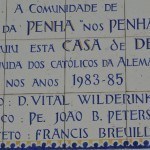 A COMUNIDADE DE
DA PENHA "NOS PENHA
UIU ESTA CASA DE DE
UDA DOS CATÓLICOS DA ALEMA
NOS ANOS 1983-85
O: D. VITAL WILDERINK
CO: PE. JOÃO B. PETERS
ETO: FRANCIS BREUILL